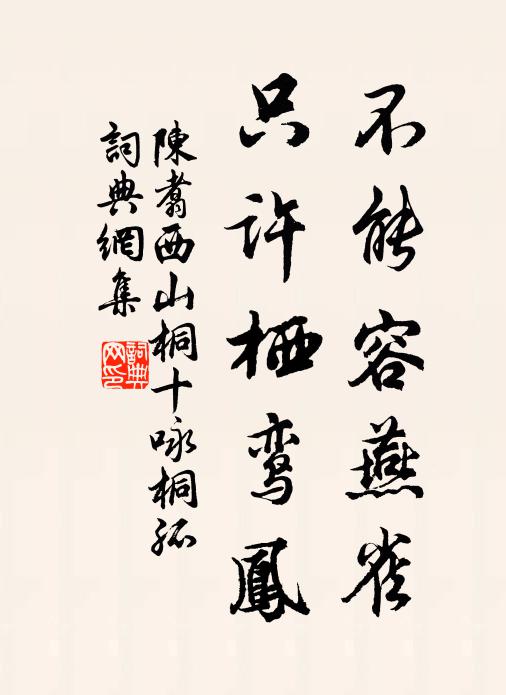 不能容燕雀
只许栖鸾鳳
陳翥西山桐十咏桐孤
詞典網集
詞典网印